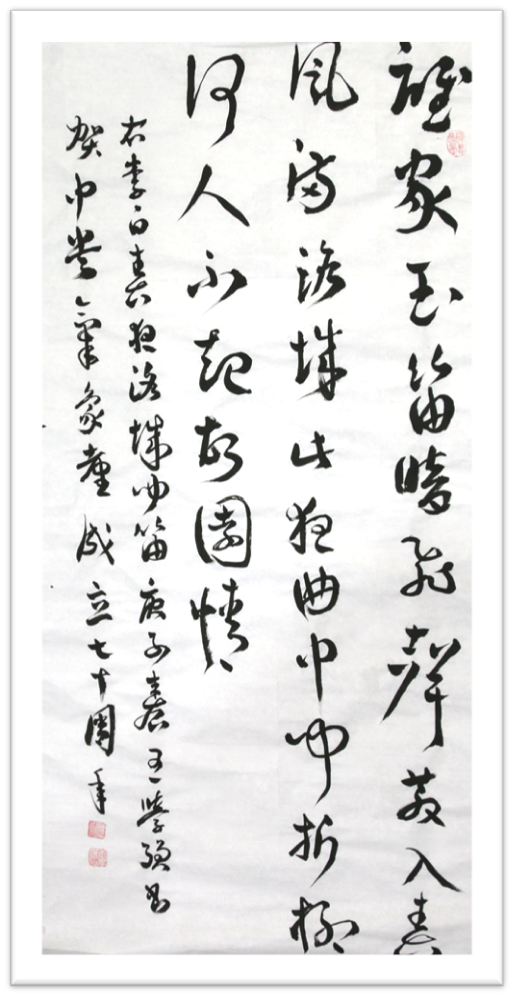 誰家玉笛暗飛聲散入春
風滿洛城此夜曲中聞折柳
何人不起故園情
右李白春夜洛城聞笛庚子春王學書
賀中央氣象臺成立七十周年